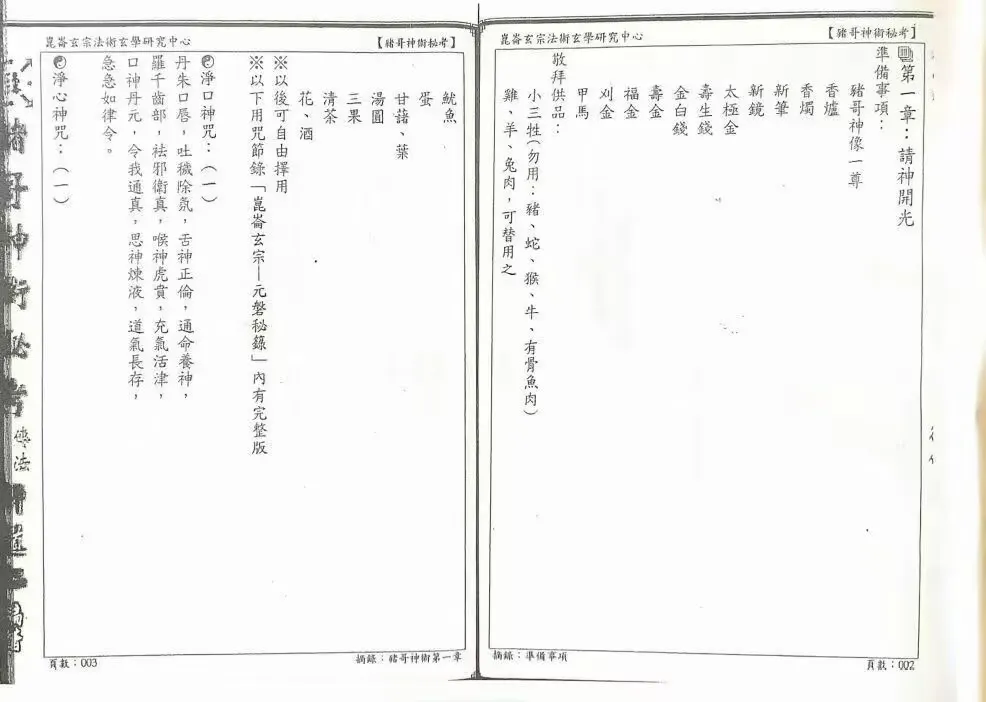 【豬哥神術秘考】
崑崙玄宗法術玄學研究中心
第一章：請神開光
準備事項：
豬哥神像一尊
香爐
香燭
新筆
新鏡
太極金
壽生錢
金白錢
壽金
福金
刈金
甲馬
敬拜供品：
小三牲（勿用：豬、蛇、猴、牛、有骨魚肉）
雞、羊、兔肉，可替用之
摘錄：準備事項
頁數：002
【豬哥神術秘考】
崑崙玄宗法術玄學研究中心
魷魚
蛋
甘藷、葉
湯圓
三果
清茶
花、酒
※以後可自由擇用
※以下用咒節錄「崑崙玄宗—元磐秘籙」內有完整版
淨口神咒：（一）
丹朱口唇，吐穢除氛，舌神正倫，通命養神，
羅千齒部，祛邪衛真，喉神虎賁，充氣活津，
口神丹元，令我通真，思神煉液，道氣長存，
急急如律令。
淨心神咒：（一）
摘錄：豬哥神術第一章
頁數：003
哥神術秘考